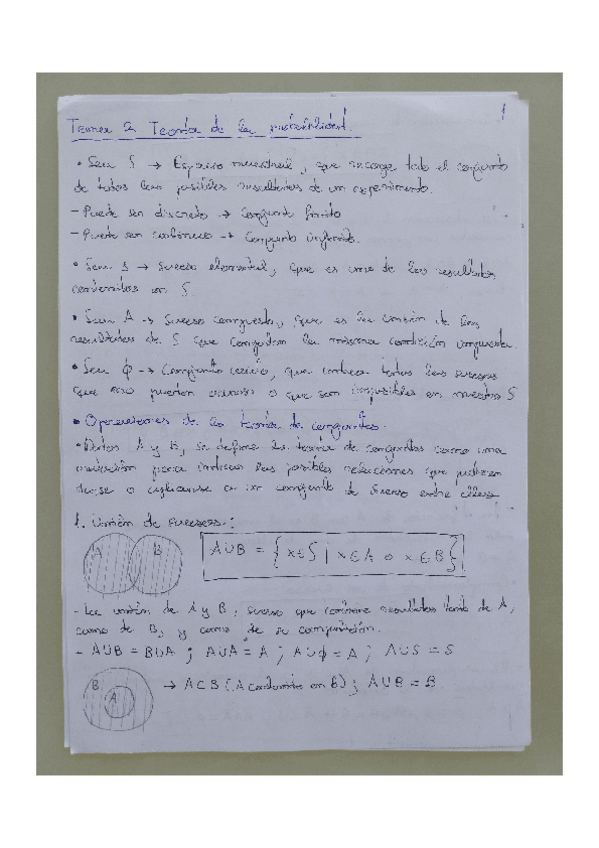 1
Tema 2: Teoría de la probabilidad.
• Sea S → Espacio muestral, que recoge todo el conjunto
de todos los posibles resultados de un experimento.
- Puede ser discreto → Conjunto finito
- Puede ser continuo → Conjunto infinito.
• Sea s → Suceso elemental, que es uno de los resultados
contenidos en S
• Sea A → Suceso compuesto, que es la unión de los
resultados de S que cumplan la misma condición impuesta.
• Sea ϕ → Conjunto vacío, que indica todos los sucesos
que no puedan o que son imposibles en nuestro S
• Operaciones de la teoría de conjuntos.
• Dados A y B, se define la teoría de conjuntos como una
notación para indicar las posibles relaciones que pudieran
darse o aplicarse a un conjunto de suceso entre ellos
1. Unión de sucesos:
A B
A∪B = {x∈S | x∈A o x∈B}
- La unión de A y B, suceso que contiene resultados tanto de A,
como de B, y como de su conjunción.
- A∪B = B∪A ; A∪A = A ; A∪ϕ = A ; A∪S = S
B A
→ A⊂B (A contenido en B) ; A∪B = B